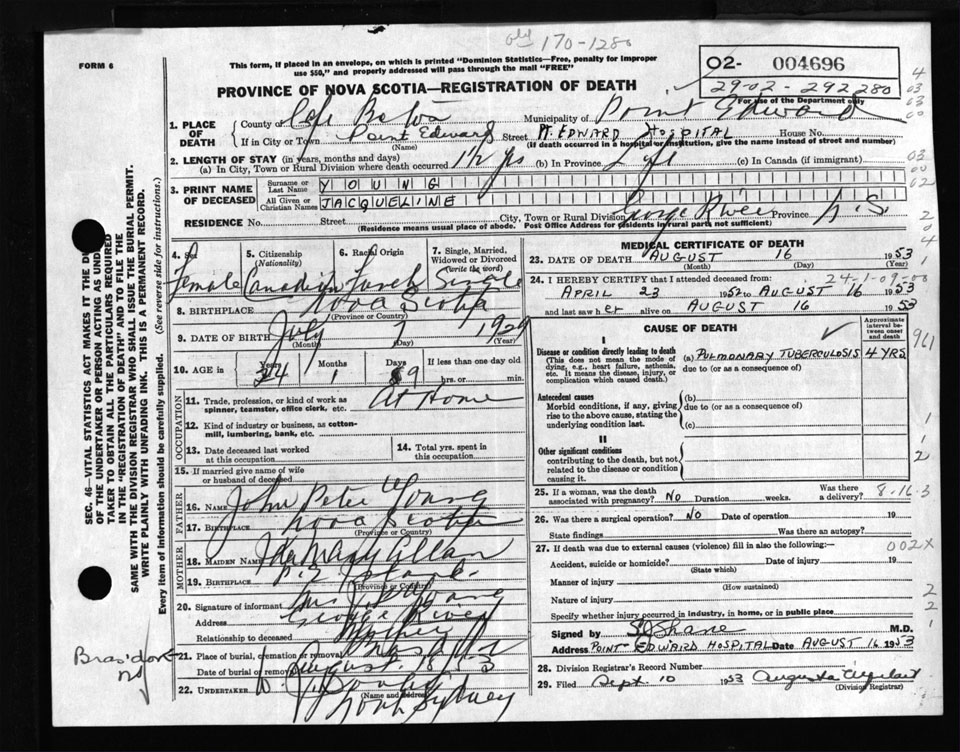 old 170-1280
FORM 6
This form, if placed in an envelope, on which is printed "Dominion Statistics—Free, penalty for improper
use $50," and properly addressed will pass through the mail "FREE"
O2- 004696
29-02-292280
For use of the Department only
PROVINCE OF NOVA SCOTIA—REGISTRATION OF DEATH
1. PLACE OF DEATH
County of Cape Breton Municipality of Point Edward
If in City or Town Point Edward Street Pt. EDWARD HOSPITAL House No.
(Name) (If death occurred in a hospital or institution, give the name instead of street and number)
2. LENGTH OF STAY (in years, months and days)
(a) In City, Town or Rural Division where death occurred 1½ yrs (b) In Province (c) In Canada (if immigrant)
3. PRINT NAME OF DECEASED
Surname or Last Name YOUNG
All Given or Christian Names JACQUELINE
RESIDENCE No. Street City, Town or Rural Division George River Province N.S.
(Residence means usual place of abode. Post Office Address for residents in rural parts not sufficient)
4. Sex Female
5. Citizenship (Nationality) Canadian
6. Racial Origin French
7. Single, Married, Widowed or Divorced (write the word) Single
8. BIRTHPLACE Nova Scotia
(Province or Country)
9. DATE OF BIRTH July 7 1929
(Month) (Day) (Year)
10. AGE in Years 24 Months 1 Days 9 If less than one day old hrs. or min.
OCCUPATION
11. Trade, profession, or kind of work as spinner, teamster, office clerk, etc. At Home
12. Kind of industry or business, as cotton-mill, lumbering, bank, etc.
13. Date deceased last worked at this occupation
14. Total yrs. spent in this occupation
15. If married give name of wife or husband of deceased
FATHER
16. NAME John Peter Young
17. BIRTHPLACE Nova Scotia
(Province or Country)
MOTHER
18. MAIDEN NAME Ida Mary Allan
19. BIRTHPLACE
(Province or Country)
20. Signature of informant Mrs J. Young
Address George River
Relationship to deceased Mother
21. Place of burial, cremation or removal Bras d'or
Date of burial or removal August 18
Bras'dor NS
22. UNDERTAKER
(Name and address)
North Sydney
MEDICAL CERTIFICATE OF DEATH
23. DATE OF DEATH AUGUST 16 1953
(Month) (Day) (Year)
24. I HEREBY CERTIFY that I attended deceased from: 24-1-09-00
APRIL 23 1952 to AUGUST 16 1953
and last saw her alive on AUGUST 16 1953
CAUSE OF DEATH
Approximate interval between onset and death
I
Disease or condition directly leading to death
(This does not mean the mode of dying, e.g., heart failure, asthenia, etc. It means the disease, injury, or complication which caused death.)
(a) PULMONARY TUBERCULOSIS 4 YRS.
due to (or as a consequence of)
961
Antecedent causes
Morbid conditions, if any, giving rise to the above cause, stating the underlying condition last.
(b)
due to (or as a consequence of)
(c)
II
Other significant conditions
contributing to the death, but not related to the disease or condition causing it.
25. If a woman, was the death associated with pregnancy? NO Duration weeks. Was there a delivery? 8-16-3
26. Was there a surgical operation? NO Date of operation 19
State findings Was there an autopsy?
27. If death was due to external causes (violence) fill in also the following:— 002X
Accident, suicide or homicide? Date of injury 19
(State which)
Manner of injury
(How sustained)
Nature of injury
Specify whether injury occurred in industry, in home, or in public place
Signed by S J Shane M.D.
Address POINT EDWARD HOSPITAL Date AUGUST 16 1953
28. Division Registrar's Record Number
29. Filed Sept. 10 1953 Augusta
(Division Registrar)
SEC. 46—VITAL STATISTICS ACT MAKES IT THE DUTY
OF THE UNDERTAKER OR PERSON ACTING AS UNDERTAKER
TO OBTAIN ALL THE PARTICULARS REQUIRED
IN THE "REGISTRATION OF DEATH" AND TO FILE THE
SAME WITH THE DIVISION REGISTRAR WHO SHALL ISSUE THE BURIAL PERMIT.
WRITE PLAINLY WITH UNFADING INK. THIS IS A PERMANENT RECORD.
Every item of information should be carefully supplied. (See reverse side for instructions.)